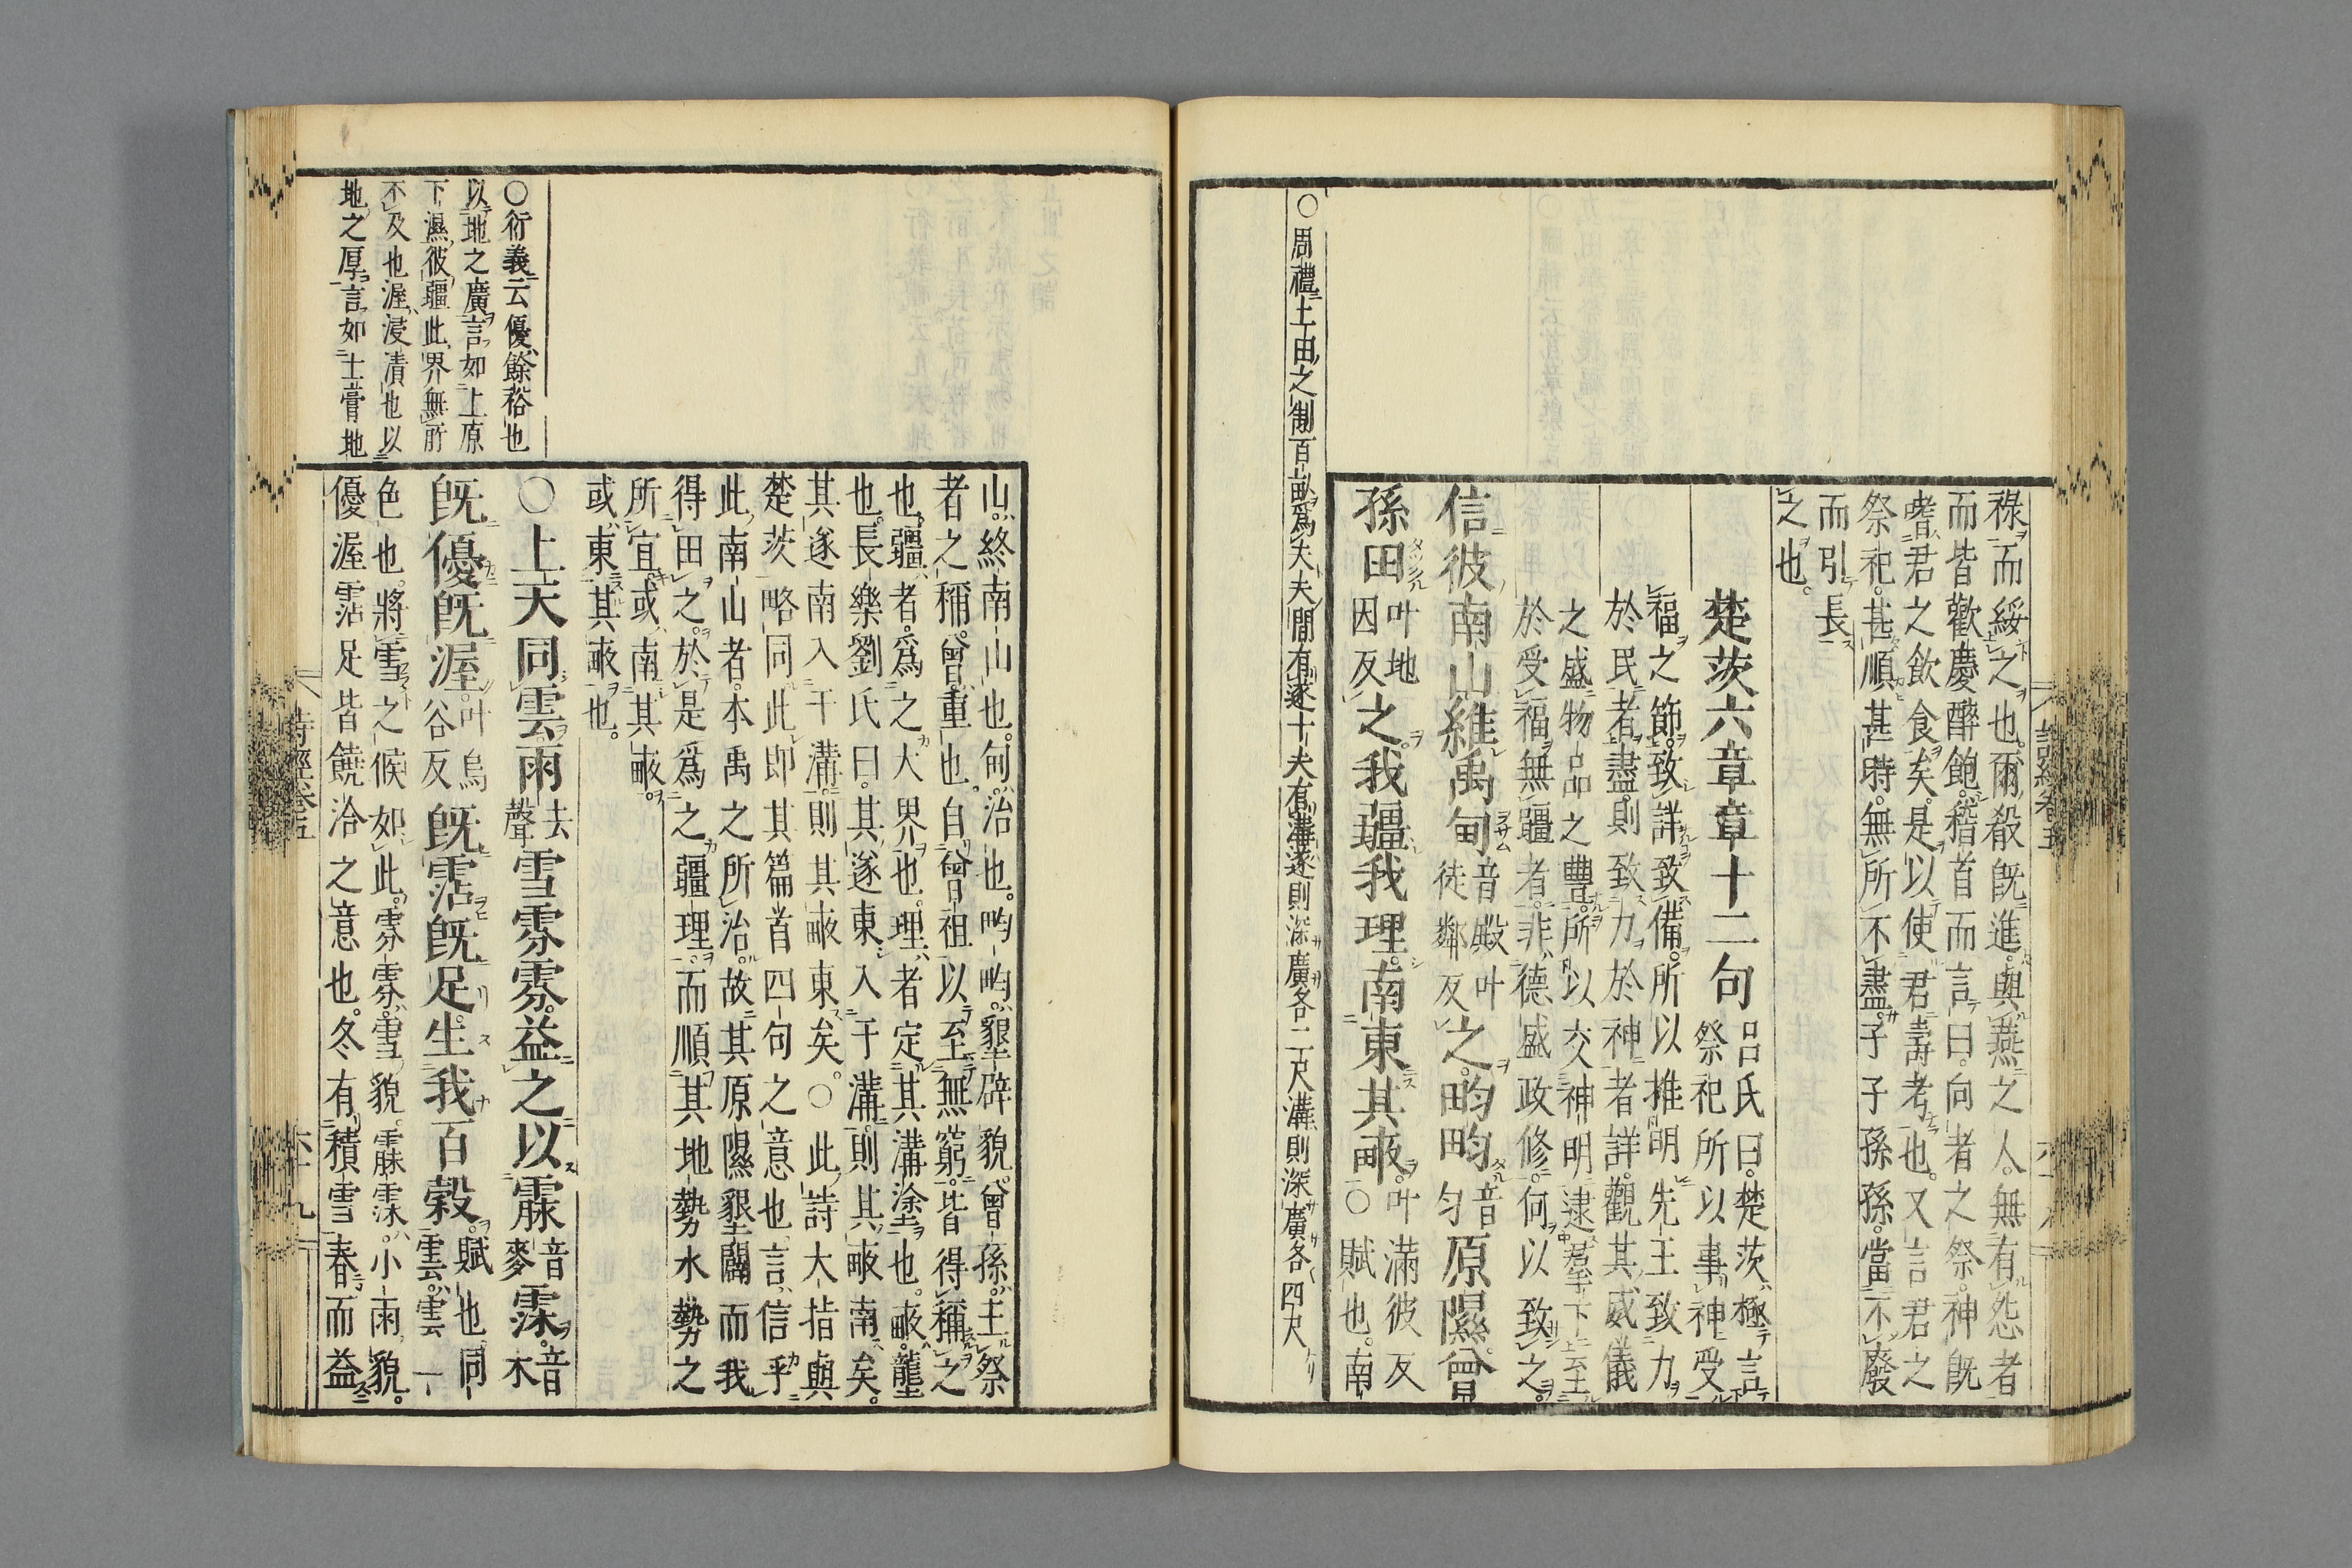 祿而綏之也爾殽既進與燕之人無有怨者
而皆歡慶醉飽稽首而言曰向者之祭神既
嗜君之飲食矣是以使君壽考也又言君之
祭祀甚順甚時無所不盡子子孫孫當不廢
而引長
之也
楚茨六章章十二句
呂氏曰楚茨極言
祭祀所以事神受
福之節致詳致備所以推明先王致力
於民者盡則致力於神者詳觀其威儀
之盛物品之豐所以交神明逮羣下至
於受福無疆者非德盛政修何以致之
信彼南山維禹甸音殿叶徒鄰反之畇畇音匀原隰曾
孫田叶地因反之我疆我理南東其畝叶滿彼反○賦也南
○周禮土田之制百畝爲夫夫間有遂十夫有溝遂則深廣各二尺溝則深廣各四尺
山終南山也甸治也畇畇墾辟貌曾孫主祭
者之稱曾重也自曾祖以至無窮皆得稱之
也疆者爲之大界也理者定其溝塗也畝壟
也長樂劉氏曰其遂東入于溝則其畝南矣
其遂南入于溝則其畝東矣○此詩大指與
楚茨略同此即其篇首四句之意也言信乎
此南山者本禹之所治故其原隰墾闢而我
得田之於是爲之疆理而順其地勢水勢之
所宜或南其畝
或東其畝也
○上天同雲雨去聲雪雰雰益之以霡音麥霂音木
既優既渥叶烏谷反既霑既足生我百穀賦也同雲雲一
色也將雪之候如此雰雰雪貌霡霂小雨貌
優渥霑足皆饒洽之意也冬有積雪春而益
○衍義云優餘裕也
以地之廣言如上原
下濕彼疆此界無所
不及也渥浸漬也以
地之厚言如土膏地
詩經卷五